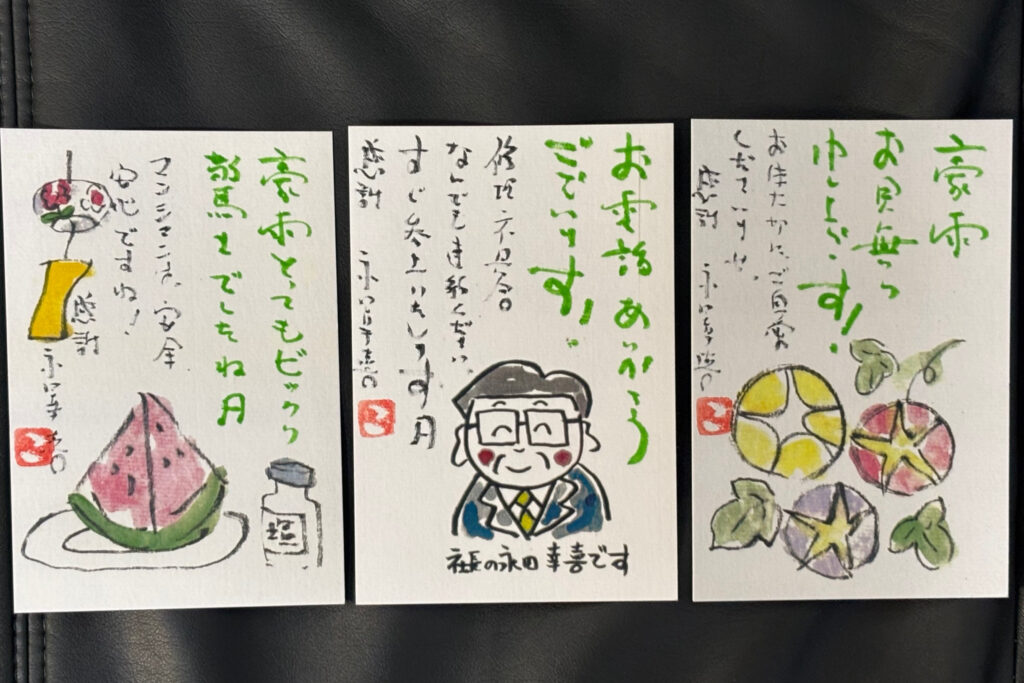 豪雨とってもビックリ
驚きでしたね
マンションは、安全
安心ですね!
感謝
永田幸喜
塩
お電話ありがとう
ございます!
修理不具合
なんでも連絡ください
すぐ参上いたします
感謝 永田幸喜
社長の永田幸喜です
豪雨
お見舞い
申し上げます!
ご自愛
くださいませ。
感謝 永田幸喜